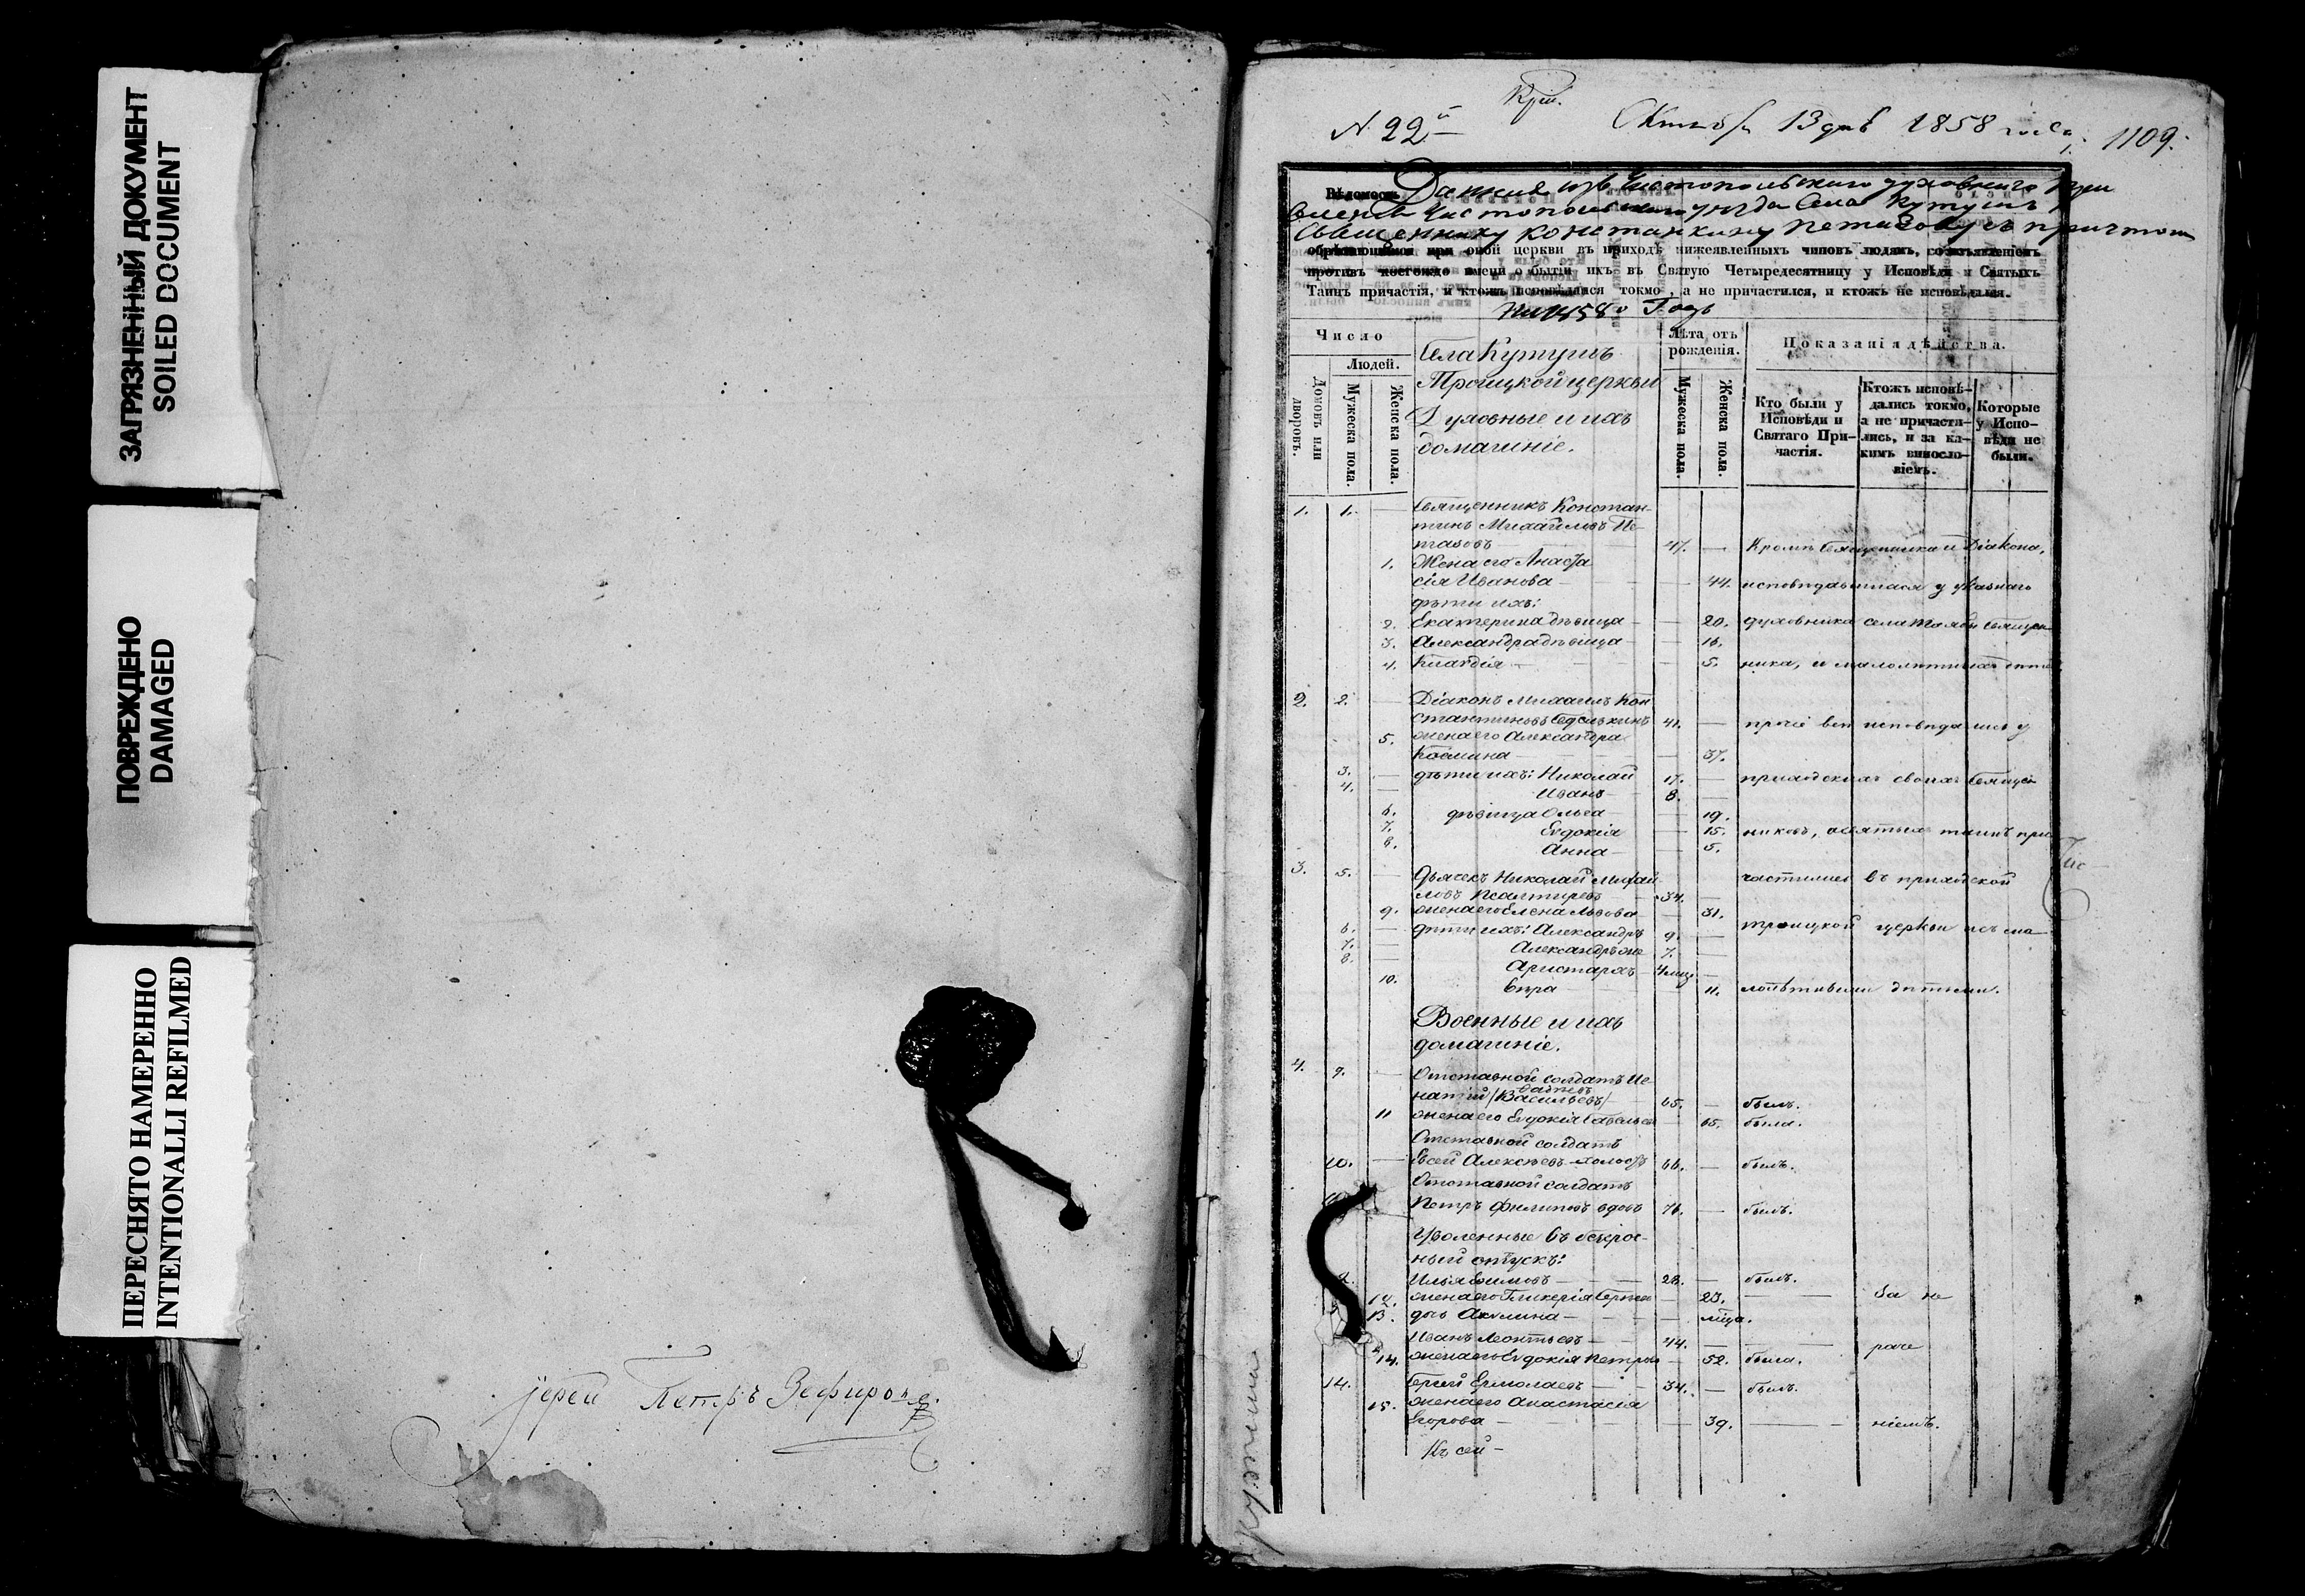 ЗАГРЯЗНЕННЫЙ ДОКУМЕНТ
SOILED DOCUMENT
ПОВРЕЖДЕНО
DAMAGED
ПЕРЕСНЯТО НАМЕРЕННО
INTENTIONALLI REFILMED
Іерей Петръ Зефировъ
N. 22й
Октября 13 дня 1858 года
1109.
Вѣдомость
Данная изъ Чистопольскаго духовнаго Прав
ленія Чистопольскаго уѣзда Села Кутушъ
Священнику Константину съ причтом
обрѣтающимся при оной церкви въ приходѣ нижеявленныхъ чиновъ людямъ, со изъявленіемъ
противъ коегождо имени о бытіи ихъ въ Святую Четыредесятницу у Исповѣди и Святыхъ
Таинъ причастія, и ктожъ исповѣдался токмо, а не причастился, и ктожъ не исповѣдался.
на 1858й Годъ
Число
Людей.
Домовъ или дворовъ.
Мужеска пола.
Женска пола.
Села Кутушъ
Троицкой церкви
Духовные и ихъ
домашніе.
Лѣта отъ рожденія.
Мужеска пола
Женска пола.
Показанія дѣйства.
Кто были у Исповѣди и Святаго Причастія.
Ктожъ исповѣдались токмо, а не причастились, и за какимъ винословіемъ.
Которые у Исповѣди не были.
1. 1. — Священникъ Констан-
тинъ Михайловъ Пе-
47. — Кромѣ Священника и Діакона,
1. Жена его Анаста
сія Иванова — 44. исповѣдавшихся у указнаго
дѣти ихъ:
2. Екатерина дѣвица — 20. духовника села
3. Александра дѣвица — 16.
4. Клавдія — 5. ника, и малолѣтныхъ
2. 2. — Діаконъ Михаилъ Кон
стантиновъ 41. — прочіе всѣ исповѣдались у
5. жена его Александра
Космина — 37.
3. — дѣти ихъ: Николай 17. — приходскихъ своихъ Священ
4. — Иванъ 8. —
6. дѣвица Ольга — 19.
7. Евдокія — 15. никовъ, а святыхъ таинъ при
8. Анна — 5.
3. 5. — Дьячекъ Николай Михай
ловъ Псалтиревъ — 34. — частились въ приходской
9. жена его Елена Львова — 31.
6. — дѣти ихъ: Александръ 9. — троицкой церкви и съ ма
7. — Александръ же 7. —
8. — Аристархъ 4 мѣс. —
10. Вѣра — 11. лолѣтными дѣтьми.
Военные и ихъ
домашніе.
4. 9. — Отставной солдатъ Иг
натій /Васильевъ/ 65. — былъ.
11 жена его Евдокія Савельева — 65. была.
Отставной солдатъ
10. — Евсей Алексѣевъ холостъ 66. — былъ.
Отставной солдатъ
Петръ Филиповъ вдовъ 76. — былъ.
Уволенные въ безсроч-
ный отпускъ:
Илья Ефимовъ — 28. — былъ.
12. жена его Гликерія Сергѣева — 23. — за не
13. дочь Акулина —
Иванъ Леонтьевъ — 44. — раче
14. жена его Евдокія Петрова — 52. была.
14. Сергій Ермолаевъ — 34. — былъ.
15. жена его Анастасія
Егорова — 39. — ніемъ.
Къ сей —